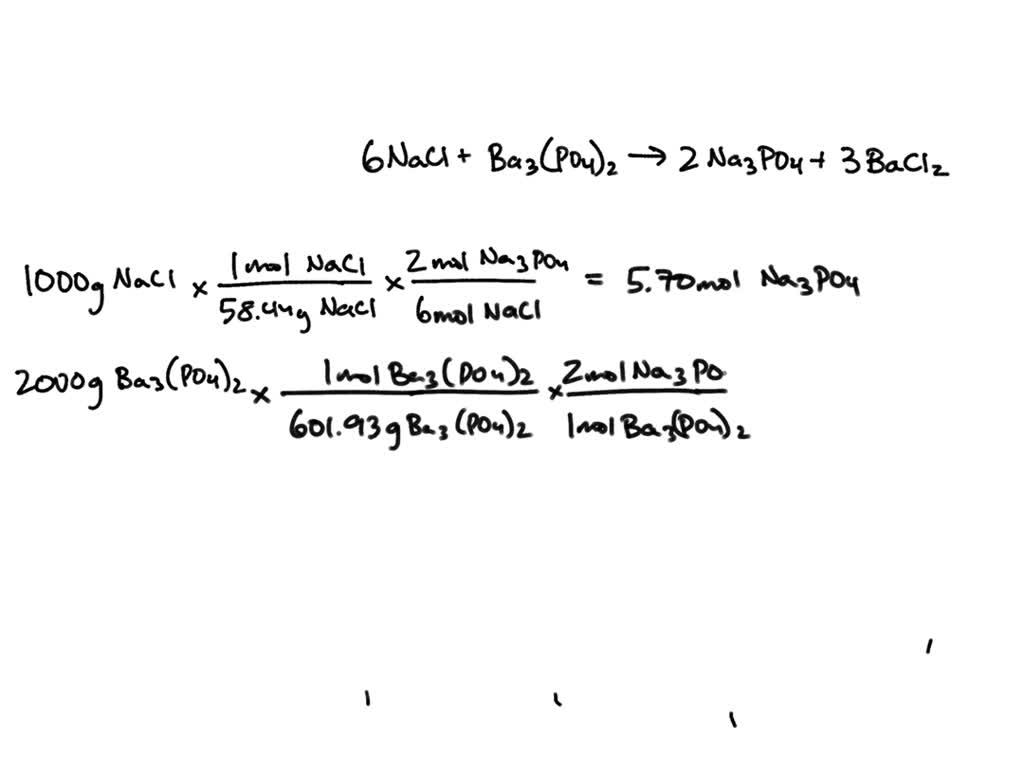 6NaCl + Ba3(PO4)2 → 2Na3PO4 + 3BaCl2
1000g NaCl × 1mol NaCl / 58.44g NaCl × 2mol Na3PO4 / 6mol NaCl = 5.70mol Na3PO4
2000g Ba3(PO4)2 × 1mol Ba3(PO4)2 / 601.93g Ba3(PO4)2 × 2mol Na3PO / 1mol Ba3(PO4)2